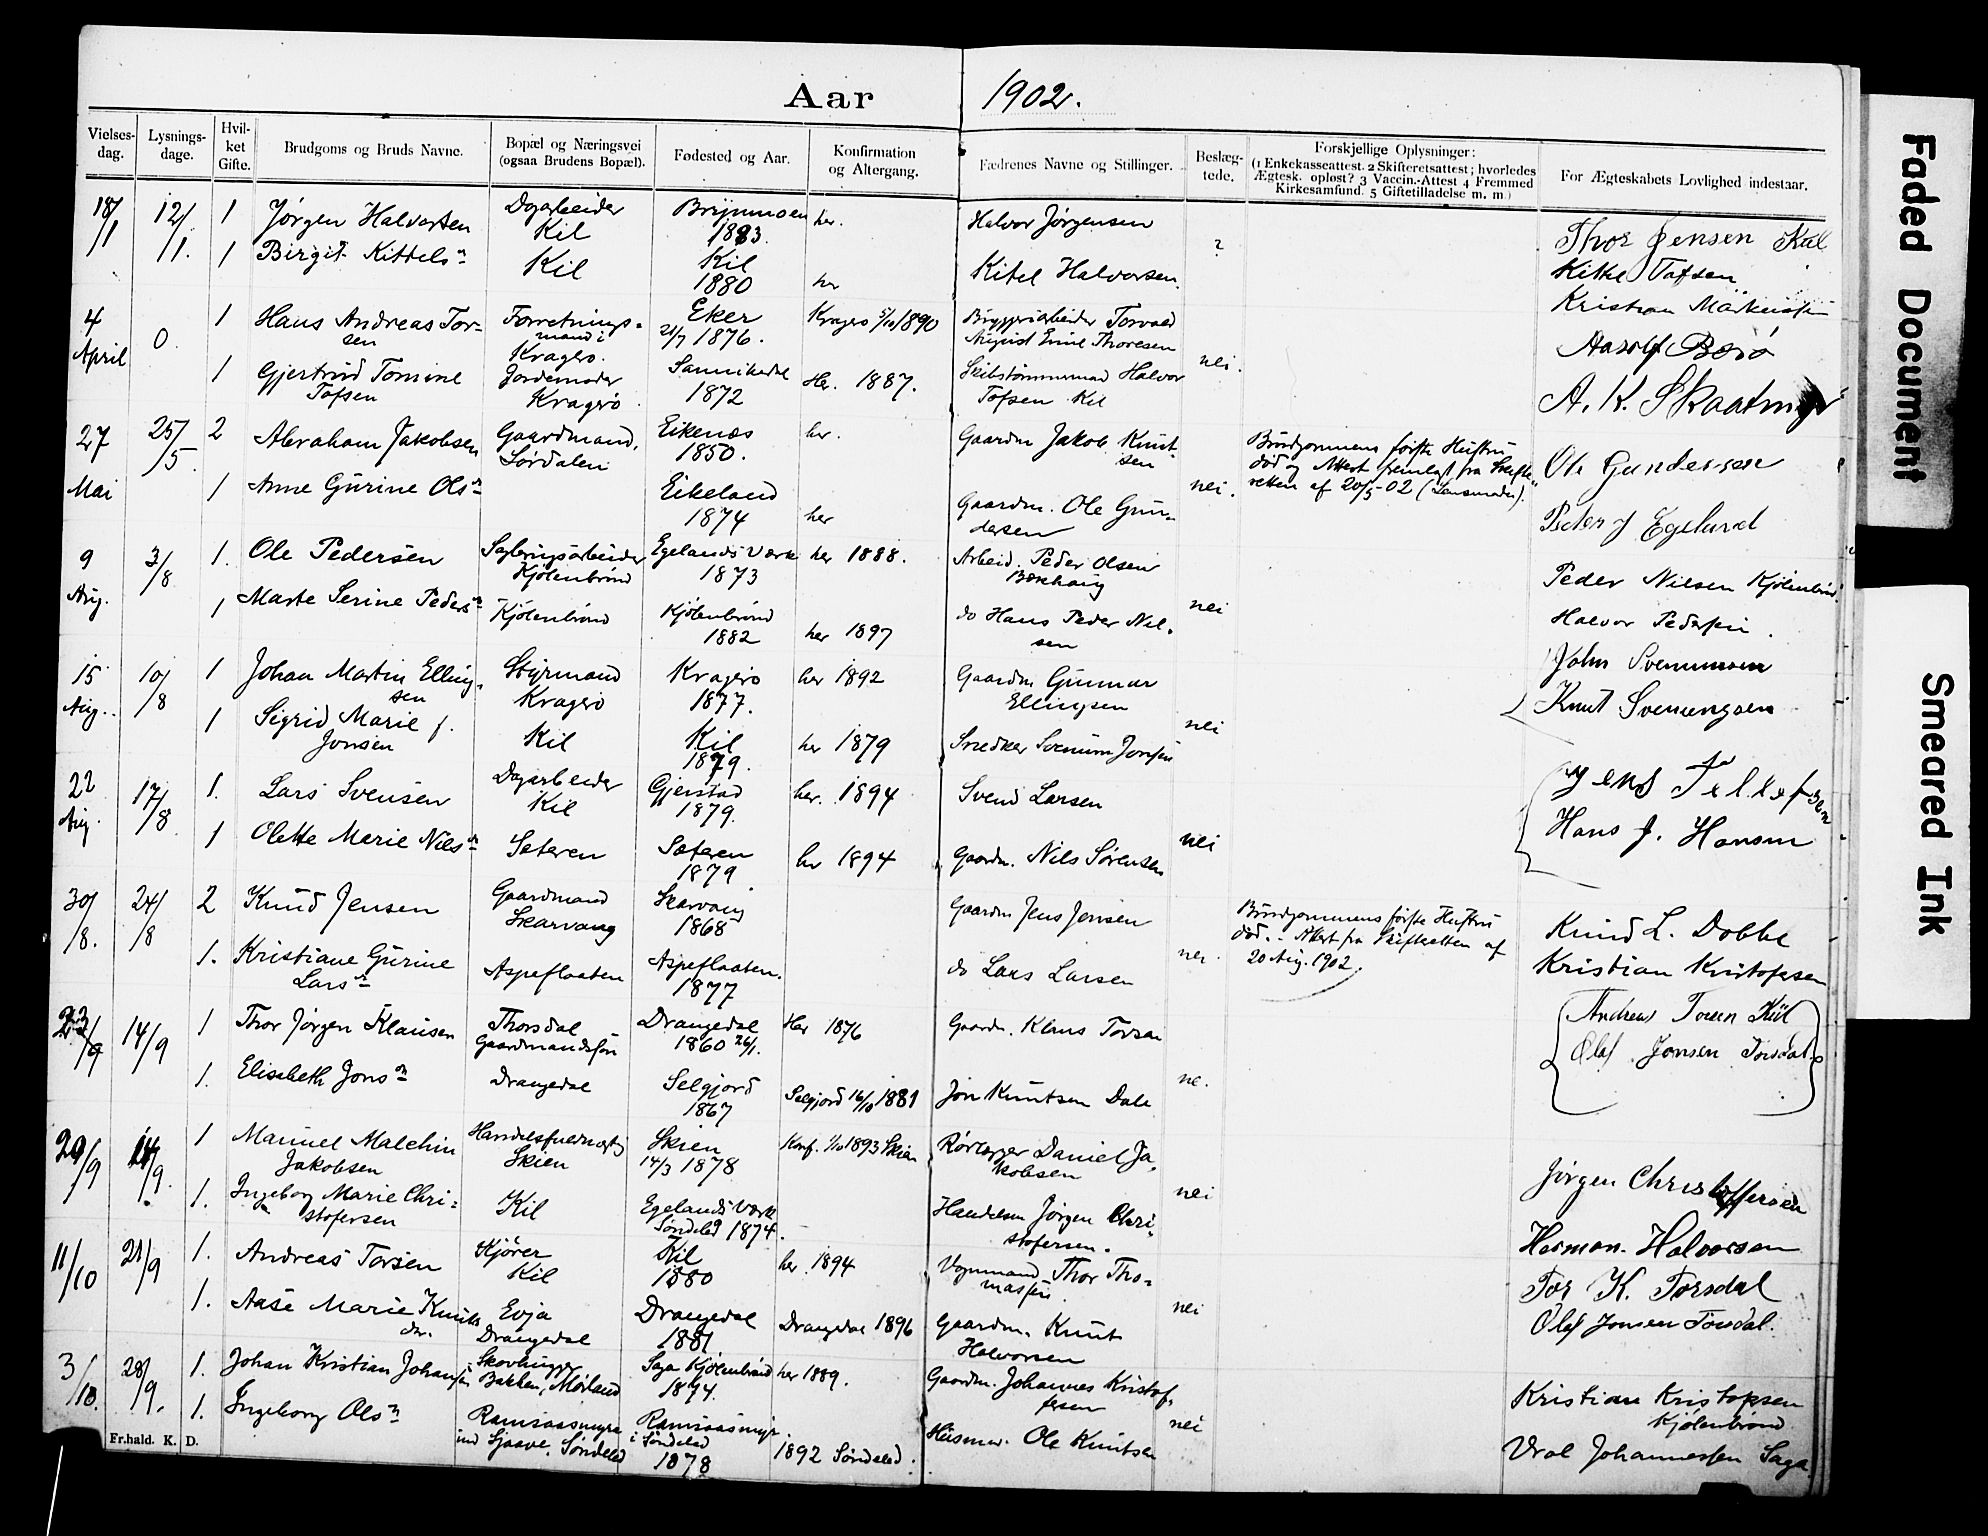 Aar 1902.
Vielses-dag. Lysnings-dage. Hvil-ket Gifte. Brudgoms og Bruds Navne. Bopæl og Næringsvei (ogsaa Brudens Bopæl). Fødested og Aar. Konfirmation og Altergang. Fædrenes Navne og Stillinger. Beslæg-tede. Forskjellige Oplysninger: (1 Enkekasseattest. 2 Skifteretsattest; hvorledes Ægtesk. oplost? 3 Vaccin.-Attest 4 Fremmed Kirkesamfund. 5 Giftetilladelse m. m.) For Ægteskabets Lovlighed indestaar.
18/1 12/1. 1 Jørgen Halvorsen Dagarbeider Kil 1883. her. Halvor Jørgensen ? Thor Jensen Kiil
1 Birgit Kittelsn Kil Kil 1880 her Kitel Halvorsen.
4 April 0. 1 Hans Andreas Torsen Forretningsmand i Kragerø. Eker 21/7 1876. Kragerø 5/10 1890 Bryggeriarbeider Torvald August Emil Thoresen nei. Kristian
1 Gjertrud Tomine Tofsen Jordemoder Kragerø Sannikedal 1872 Her. 1887. Skibstømmermand Halvor Tofsen Kil A. K.
27 Mai 25/5. 2 Abraham Jakobsen Gaardmand. Sørdalen Eikenæs 1850. her. Gaardm Jakob Knutsen nei. Brudgommens første Hustru død og Attest fremlagt fra Skifteretten af 20/5-02 (Lensmanden). Ole Gundersen
1 Anne Gurine Olsn Eikeland 1874 her Gaardm. Ole Gundersen Peder J Egeland
9 Aug. 3/8 1. Ole Pedersen Kjølenbrønd Egelands Værk 1873 her 1888. Arbeid. Peder Olsen nei Peder Nilsen Kjølenbrønd
1 Marte Serine Pedersn Kjølenbrønd Kjølenbrønd 1882 her 1897 do Hans Peder Nilsen Halvor Pedersen.
15 Aug. 10/8 1 Johan Martin Ellingsen Styrmand Kragerø Kragerø 1877. her 1892 Gaardm Gunnar Ellingsen nei John
1 Sigrid Marie J. Jonsen Kil Kil 1879. her 1879 Snedker Svenum Jonsen Knut
22 Aug. 17/8 1. Lars Svensen Dagarbeider Kil Gjerstad 1879. her. 1894 Svend Larsen nei Jens Tellefsen
1 Olette Marie Nilsn Sæteren Sæteren 1879. her 1894 Gaardm. Nils Sørensen Hans J. Hansen
30/8. 24/8 2 Knud Jensen Gaardmand Skarvang Skarvang 1868 Gaardm Jens Jensen nei. Brudgommens første Hustru død. - Attest fra Skifteretten af 20 Aug. 1902. Knud L. Dobbe
1. Kristiane Gurine Larsn Aspeflaaten Aspeflaaten. 1877 do Lars Larsen Kristian Kristofsen
23/9 14/9 1 Thor Jørgen Klausen Thorsdal Gaardmandssøn Drangedal 1860 26/1. Her 1876 Gaardm. Klaus Torsen ne. Andreas Kiil
1. Elisabeth Jonsn Drangedal Selgjord 1867 Selgjord 16/10 1881 Jon Knutsen Dale Olaf Jonsen Torsdal
29/9 14/9. 1 Manuel Malchin Jakobsen Handelsfuldmægtig Skien Skien 14/3 1878 Konf. 1/10 1893 Skien Rørlægger Daniel Jakobsen nei Jørgen Christoffersen
1. Ingeborg Marie Christofersen Kil Egelands Værk Søndeled 1874. Handelsm Jørgen Christofersen.
11/10 21/9 1. Andreas Torsen Kjører Kil Kil 1880 her 1894 Vognmand Thor Thomassen nei Herman Halvorsen
1. Aase Marie Knutsdr. Evja Drangedal Drangedal 1881 Drangedal 1896 Gaardm. Knut Halvorsen Tor K. Torsdal
Olaf Jonsen Torsdal.
3/10. 28/9. 1. Johan Kristian Johansen Skovhugger Bakken, Mørland Saga Kjølenbrønd 1874. her 1889. Gaardm. Johannes Kristoffersen nei Kristian Kristofsen Kjølenbrønd
1. Ingeborg Olsn Ramsaasmyra Søndeled i Søndeled 1878 1892 Søndeled. Husmd. Ole Knutsen Johannessen Saga.
Fr.hald. K. D.
Faded Document
Smeared Ink